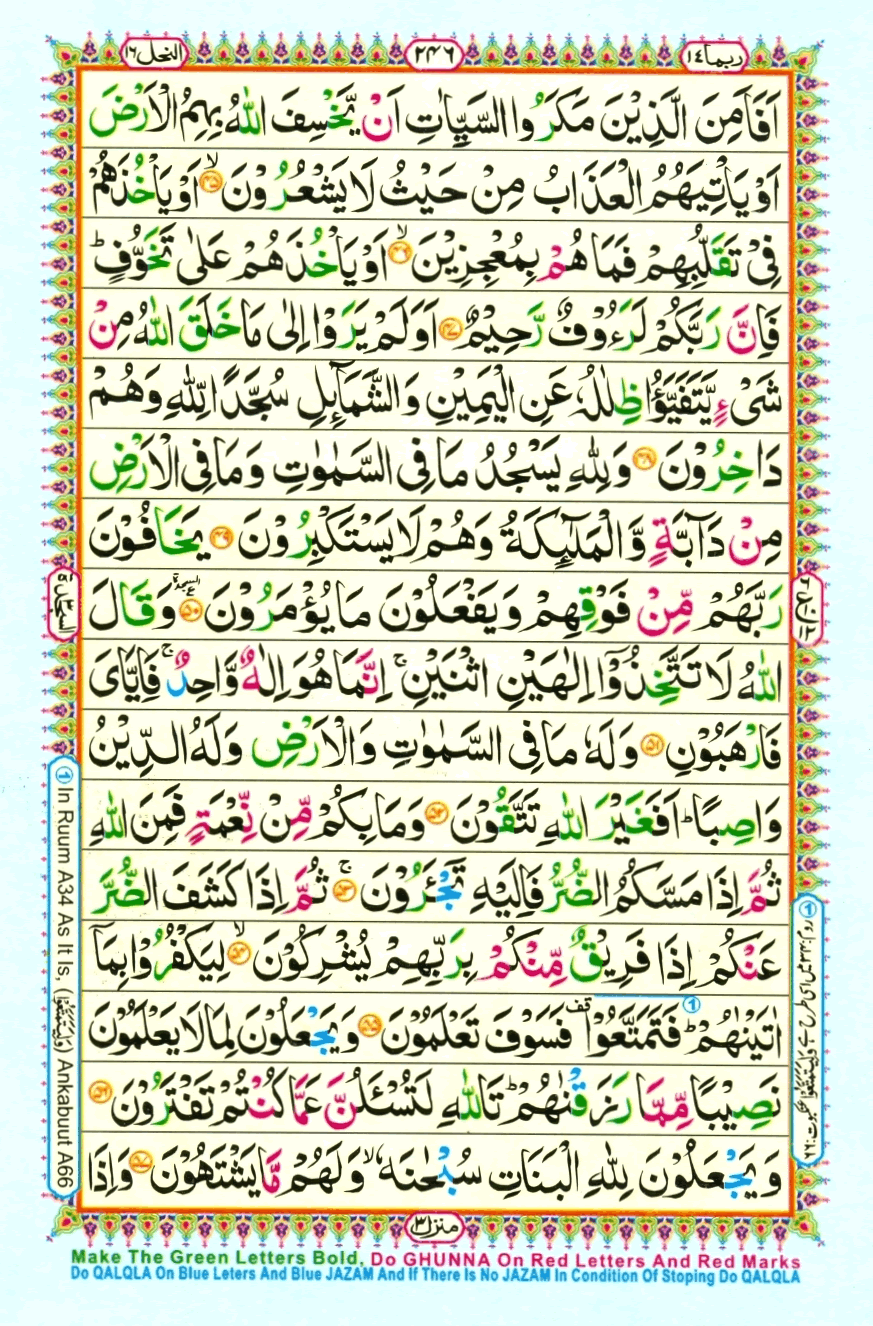 ربما ١٤
٢٤٦
النحل ١٦
اَفَاَمِنَ الَّذِيْنَ مَكَرُوا السَّيِّاٰتِ اَنْ يَّخْسِفَ اللّٰهُ بِهِمُ الْاَرْضَ
اَوْ يَاْتِيَهُمُ الْعَذَابُ مِنْ حَيْثُ لَا يَشْعُرُوْنَ ۙ‏﴿۴۵﴾ اَوْ يَاْخُذَهُمْ
فِىْ تَقَلُّبِهِمْ فَمَا هُمْ بِمُعْجِزِيْنَ ۙ‏﴿۴۶﴾ اَوْ يَاْخُذَهُمْ عَلٰى تَخَوُّفٍ ؕ
فَاِنَّ رَبَّكُمْ لَرَءُوْفٌ رَّحِيْمٌ ﴿۴۷﴾ اَوَلَمْ يَرَوْا اِلٰى مَا خَلَقَ اللّٰهُ مِنْ
شَىْءٍ يَّتَفَيَّؤُا ظِلٰلُهٗ عَنِ الْيَمِيْنِ وَالشَّمَآئِلِ سُجَّدًا لِّلّٰهِ وَهُمْ
دَاخِرُوْنَ ﴿۴۸﴾ وَلِلّٰهِ يَسْجُدُ مَا فِى السَّمٰوٰتِ وَمَا فِى الْاَرْضِ
مِنْ دَآبَّةٍ وَّالْمَلٰٓئِكَةُ وَهُمْ لَا يَسْتَكْبِرُوْنَ ﴿۴۹﴾ يَخَافُوْنَ
رَبَّهُمْ مِّنْ فَوْقِهِمْ وَيَفْعَلُوْنَ مَا يُؤْمَرُوْنَ ﴿۵۰﴾ وَقَالَ
اللّٰهُ لَا تَتَّخِذُوْۤا اِلٰهَيْنِ اثْنَيْنِ ۚ اِنَّمَا هُوَ اِلٰهٌ وَّاحِدٌ ۚ فَاِيَّاىَ
فَارْهَبُوْنِ ﴿۵۱﴾ وَلَهٗ مَا فِى السَّمٰوٰتِ وَالْاَرْضِ وَلَهُ الدِّيْنُ
وَاصِبًا ؕ اَفَغَيْرَ اللّٰهِ تَتَّقُوْنَ ﴿۵۲﴾ وَمَا بِكُمْ مِّنْ نِّعْمَةٍ فَمِنَ اللّٰهِ
ثُمَّ اِذَا مَسَّكُمُ الضُّرُّ فَاِلَيْهِ تَجْئَرُوْنَ ۚ‏﴿۵۳﴾ ثُمَّ اِذَا كَشَفَ الضُّرَّ
عَنْكُمْ اِذَا فَرِيْقٌ مِّنْكُمْ بِرَبِّهِمْ يُشْرِكُوْنَ ۙ‏﴿۵۴﴾ لِيَكْفُرُوْا بِمَاۤ
اٰتَيْنٰهُمْ ؕ فَتَمَتَّعُوْا ۫ قف فَسَوْفَ تَعْلَمُوْنَ ﴿۵۵﴾ وَيَجْعَلُوْنَ لِمَا لَا يَعْلَمُوْنَ
نَصِيْبًا مِّمَّا رَزَقْنٰهُمْ ؕ تَاللّٰهِ لَتُسْئَلُنَّ عَمَّا كُنْتُمْ تَفْتَرُوْنَ ﴿۵۶﴾
وَيَجْعَلُوْنَ لِلّٰهِ الْبَنَاتِ سُبْحٰنَهٗ ۙ وَلَهُمْ مَّا يَشْتَهُوْنَ ﴿۵۷﴾ وَاِذَا
السجدة ٣
① In Ruum A34 As It Is, (وَلِيَتَمَتَّعُوْا) Ankabuut A66
منزل ٣
Make The Green Letters Bold, Do GHUNNA On Red Letters And Red Marks
Do QALQLA On Blue Leters And Blue JAZAM And If There Is No JAZAM In Condition Of Stoping Do QALQLA